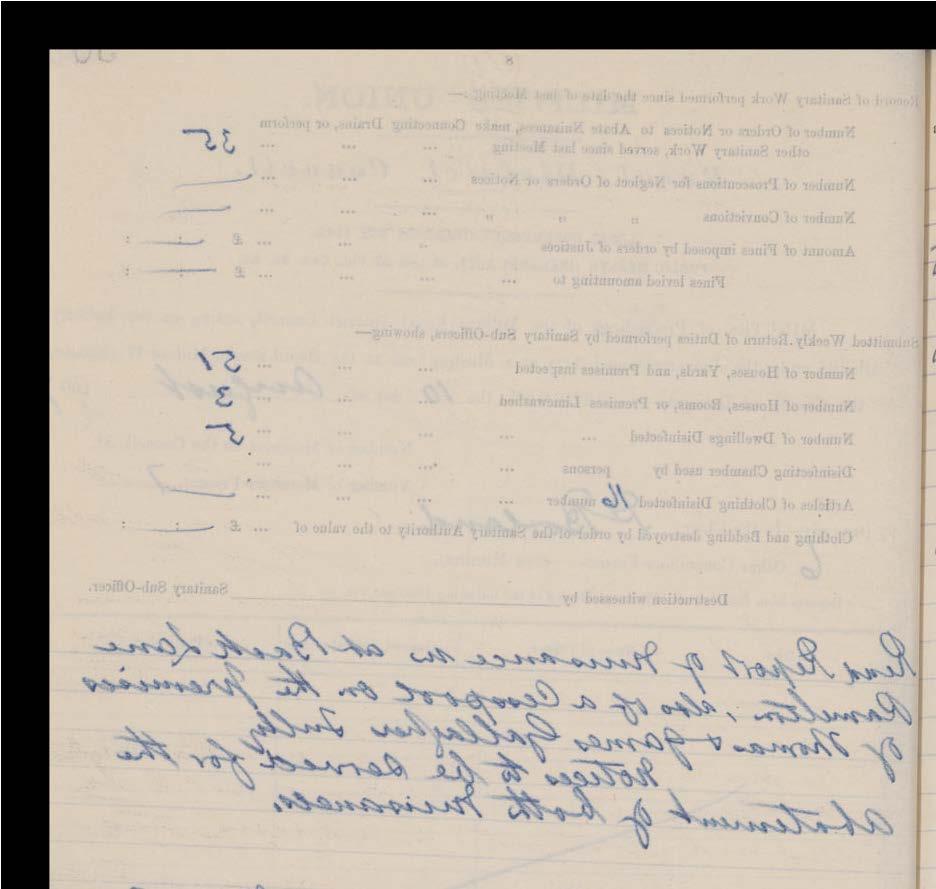 8
Record of Sanitary Work performed since the date of last Meeting :—
Number of Orders or Notices to Abate Nuisances, make Connecting Drains, or perform
other Sanitary Work, served since last Meeting ... ... ... 35
Number of Prosecutions for Neglect of Orders or Notices ... ... ... —
Number of Convictions „ „ „ ... ... ... —
Amount of Fines imposed by orders of Justices .. ... ... £ — : :
Fines levied amounting to ... ... ... ... £ — : :
Submitted Weekly Return of Duties performed by Sanitary Sub-Officers, showing—
Number of Houses, Yards, and Premises inspected ... ... ... 51
Number of Houses, Rooms, or Premises Limewashed ... ... ... 3
Number of Dwellings Disinfected ... ... ... ... ... 5
Disinfecting Chamber used by persons ... ... ... ...
Articles of Clothing Disinfected 16 number ... ... ... ... —
Clothing and Bedding destroyed by order of the Sanitary Authority to the value of ... £ — : :
Destruction witnessed by Sanitary Sub-Officer.
Read Report of Nuisance as at Back Lane
Ramelton, also of a Cesspool on the premises
of Thomas & James Gallagher Tully
Notices to be served for the
abatement of both Nuisances.